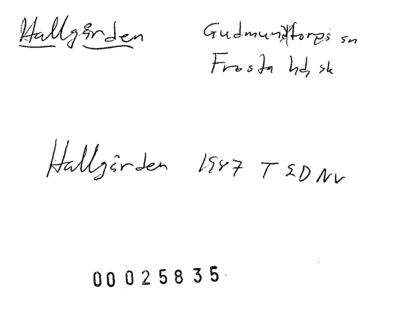 Hallgården Gudmuntorps sn
Frosta hd, sk
Hallgården 1947 T EDNV
00025835